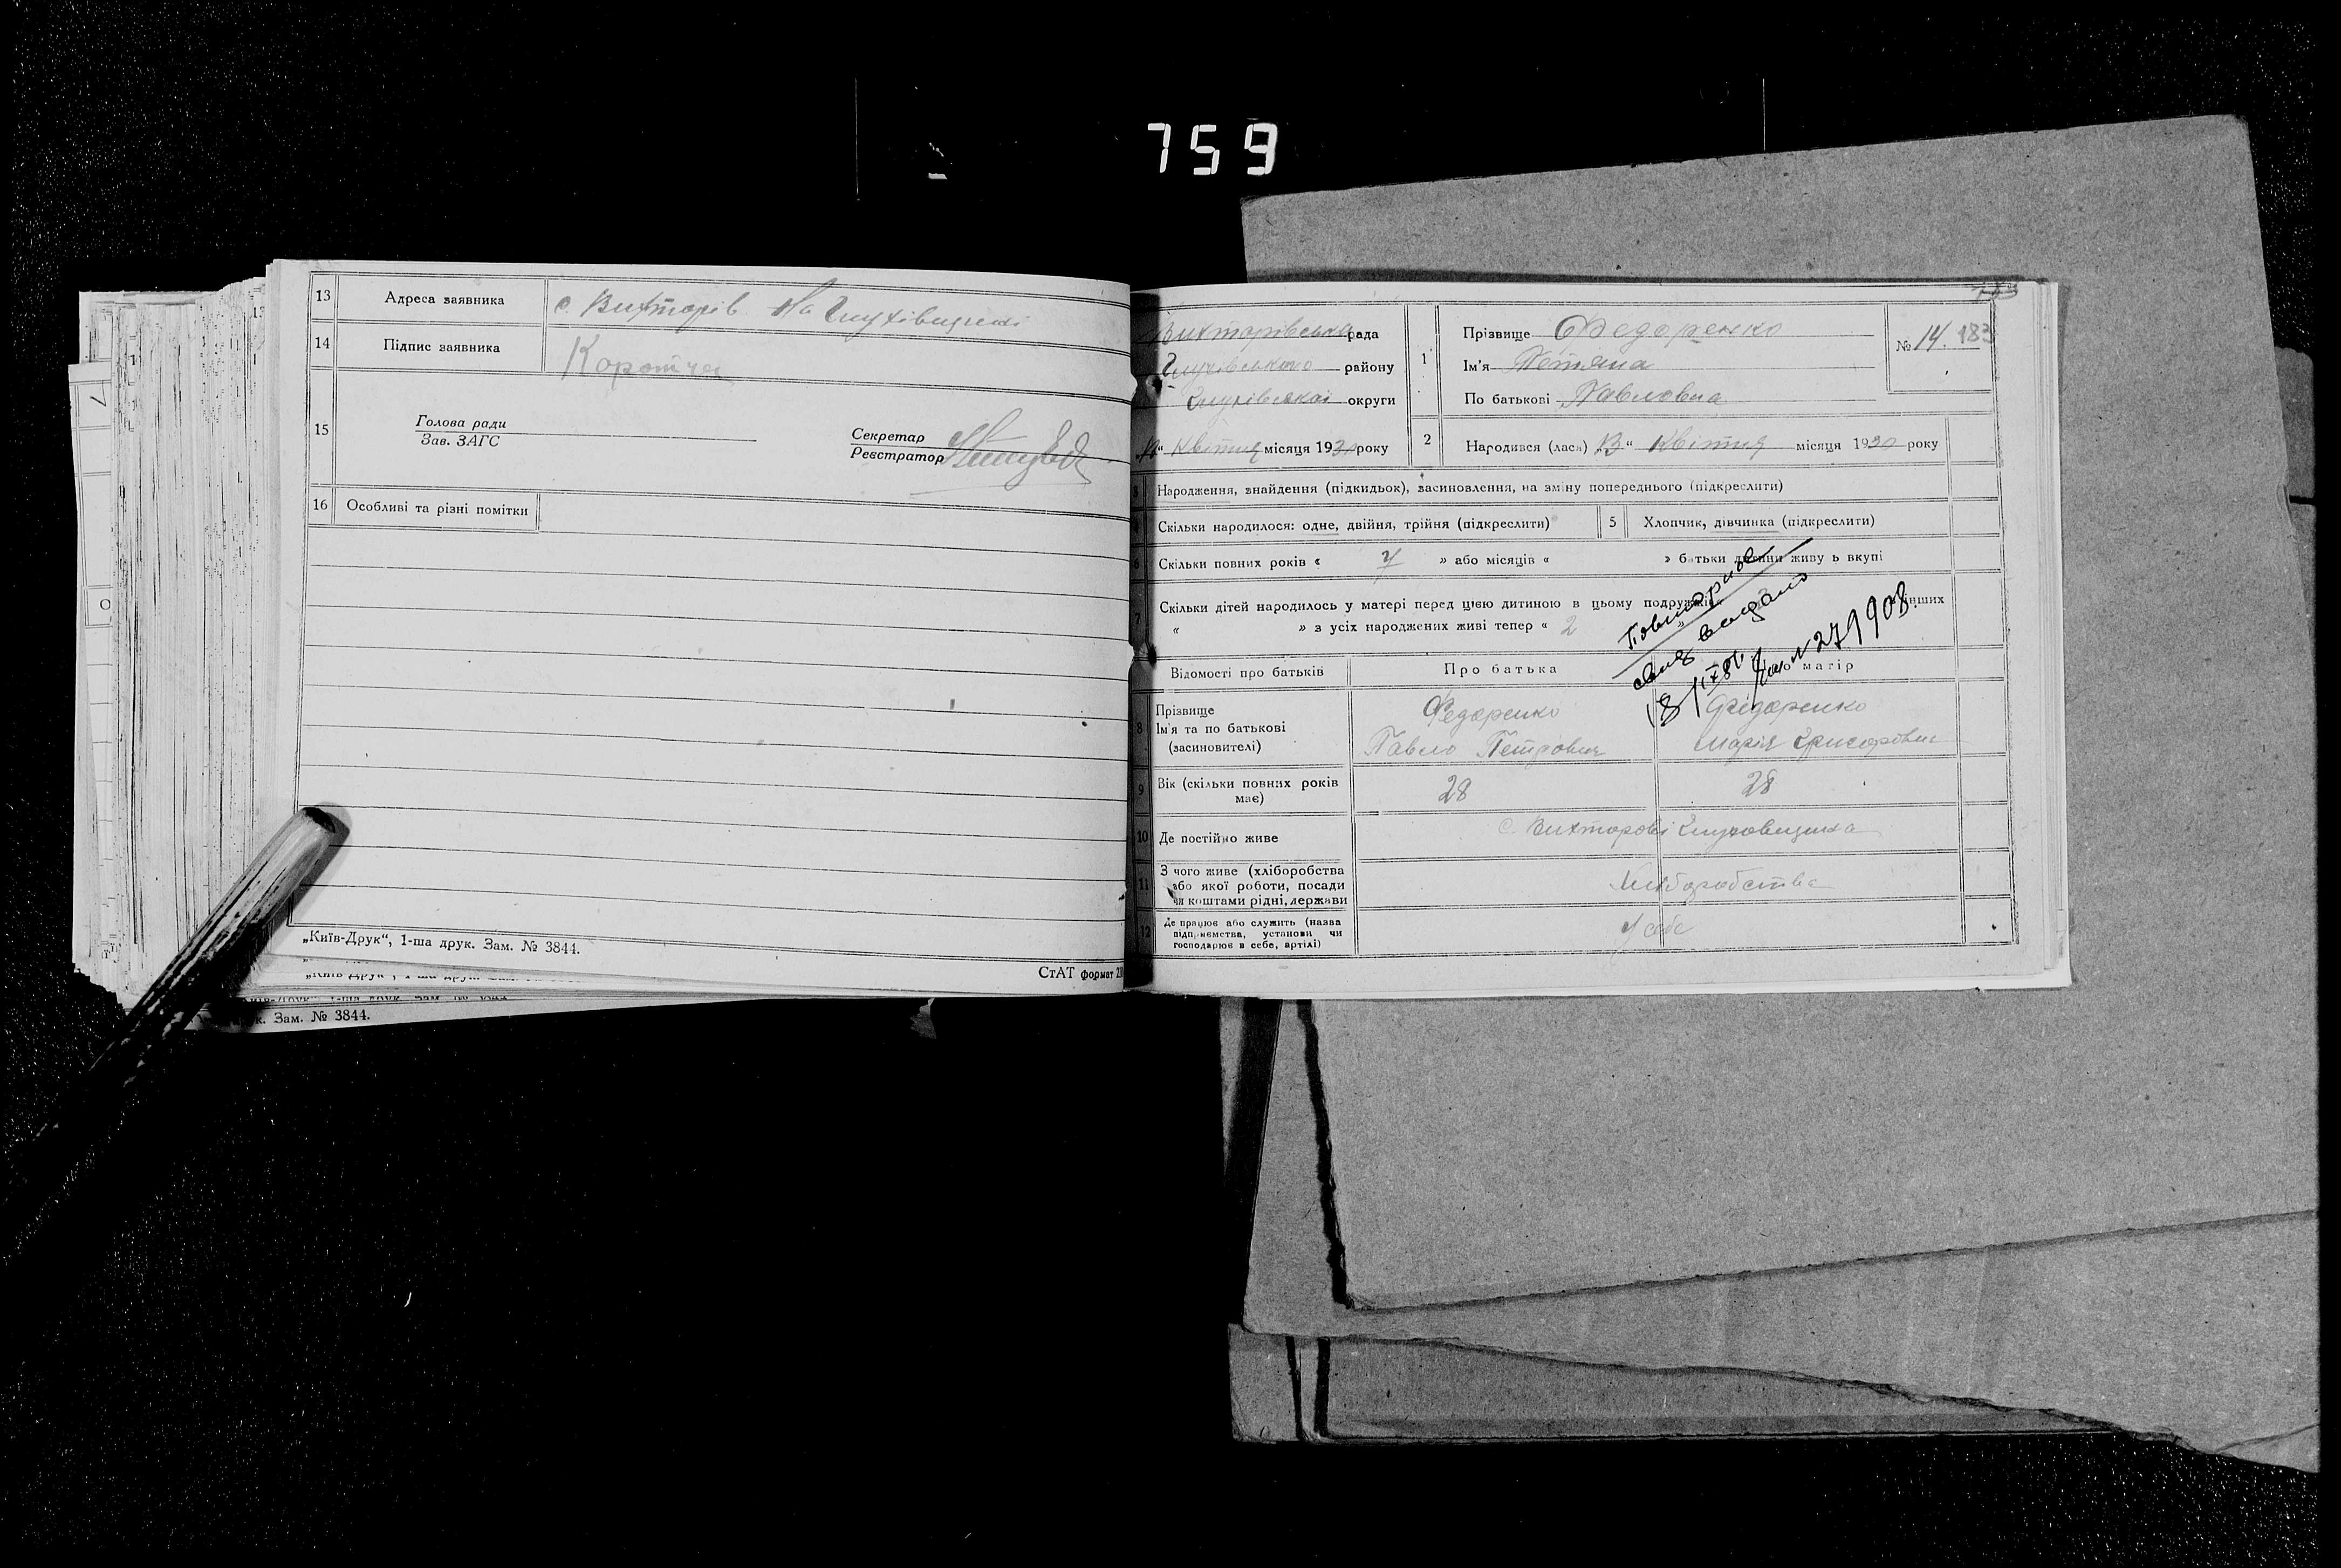 759
13 Адреса заявника с. Вихторів на Глухівщині
14 Підпис заявника Коротчен
15 Голова ради
Зав. ЗАГС
Секретар
Реєстратор
16 Особливі та різні помітки
„Київ-Друк“, 1-ша друк. Зам. № 3844.
СтАТ формат
Зам. № 3844.
183
Вихторівська рада
Глухівського району
Глухівської округи
“ Квітня місяця 1930 року
1 Прізвище Федоренко
Ім'я Тетяна
По батькові Павловна
№ 14. 183
2 Народився (лася) 13 “ Квітня місяця 1930 року
3 Народження, знайдення (підкидьок), засиновлення, на зміну попереднього (підкреслити)
Скільки народилося: одне, двійня, трійня (підкреслити)
5 Хлопчик, дівчинка (підкреслити)
6 Скільки повних років « » або місяців « » батьки дитини живуть вкупі
7 Скільки дітей народилось у матері перед цією дитиною в цьому подружжі інших
« » з усіх народжених живі тепер « 2
Повторное
свид выдано
№ 271908
Відомості про батьків
Про батька
Про матір
8 Прізвище
Ім'я та по батькові
(засиновителі)
Федоренко
Павло Петрович
Федоренко
Марія Григорівна
9 Вік (скільки повних років
має)
28
28
10 Де постійно живе
с. Вихторові Глуховщина
11 З чого живе (хліборобства
або якої роботи, посади
чи коштами рідні, держави
Хліборобства
12 Де працює або служить (назва
підприємства, установи чи
господарює в себе, артілі)
У себе